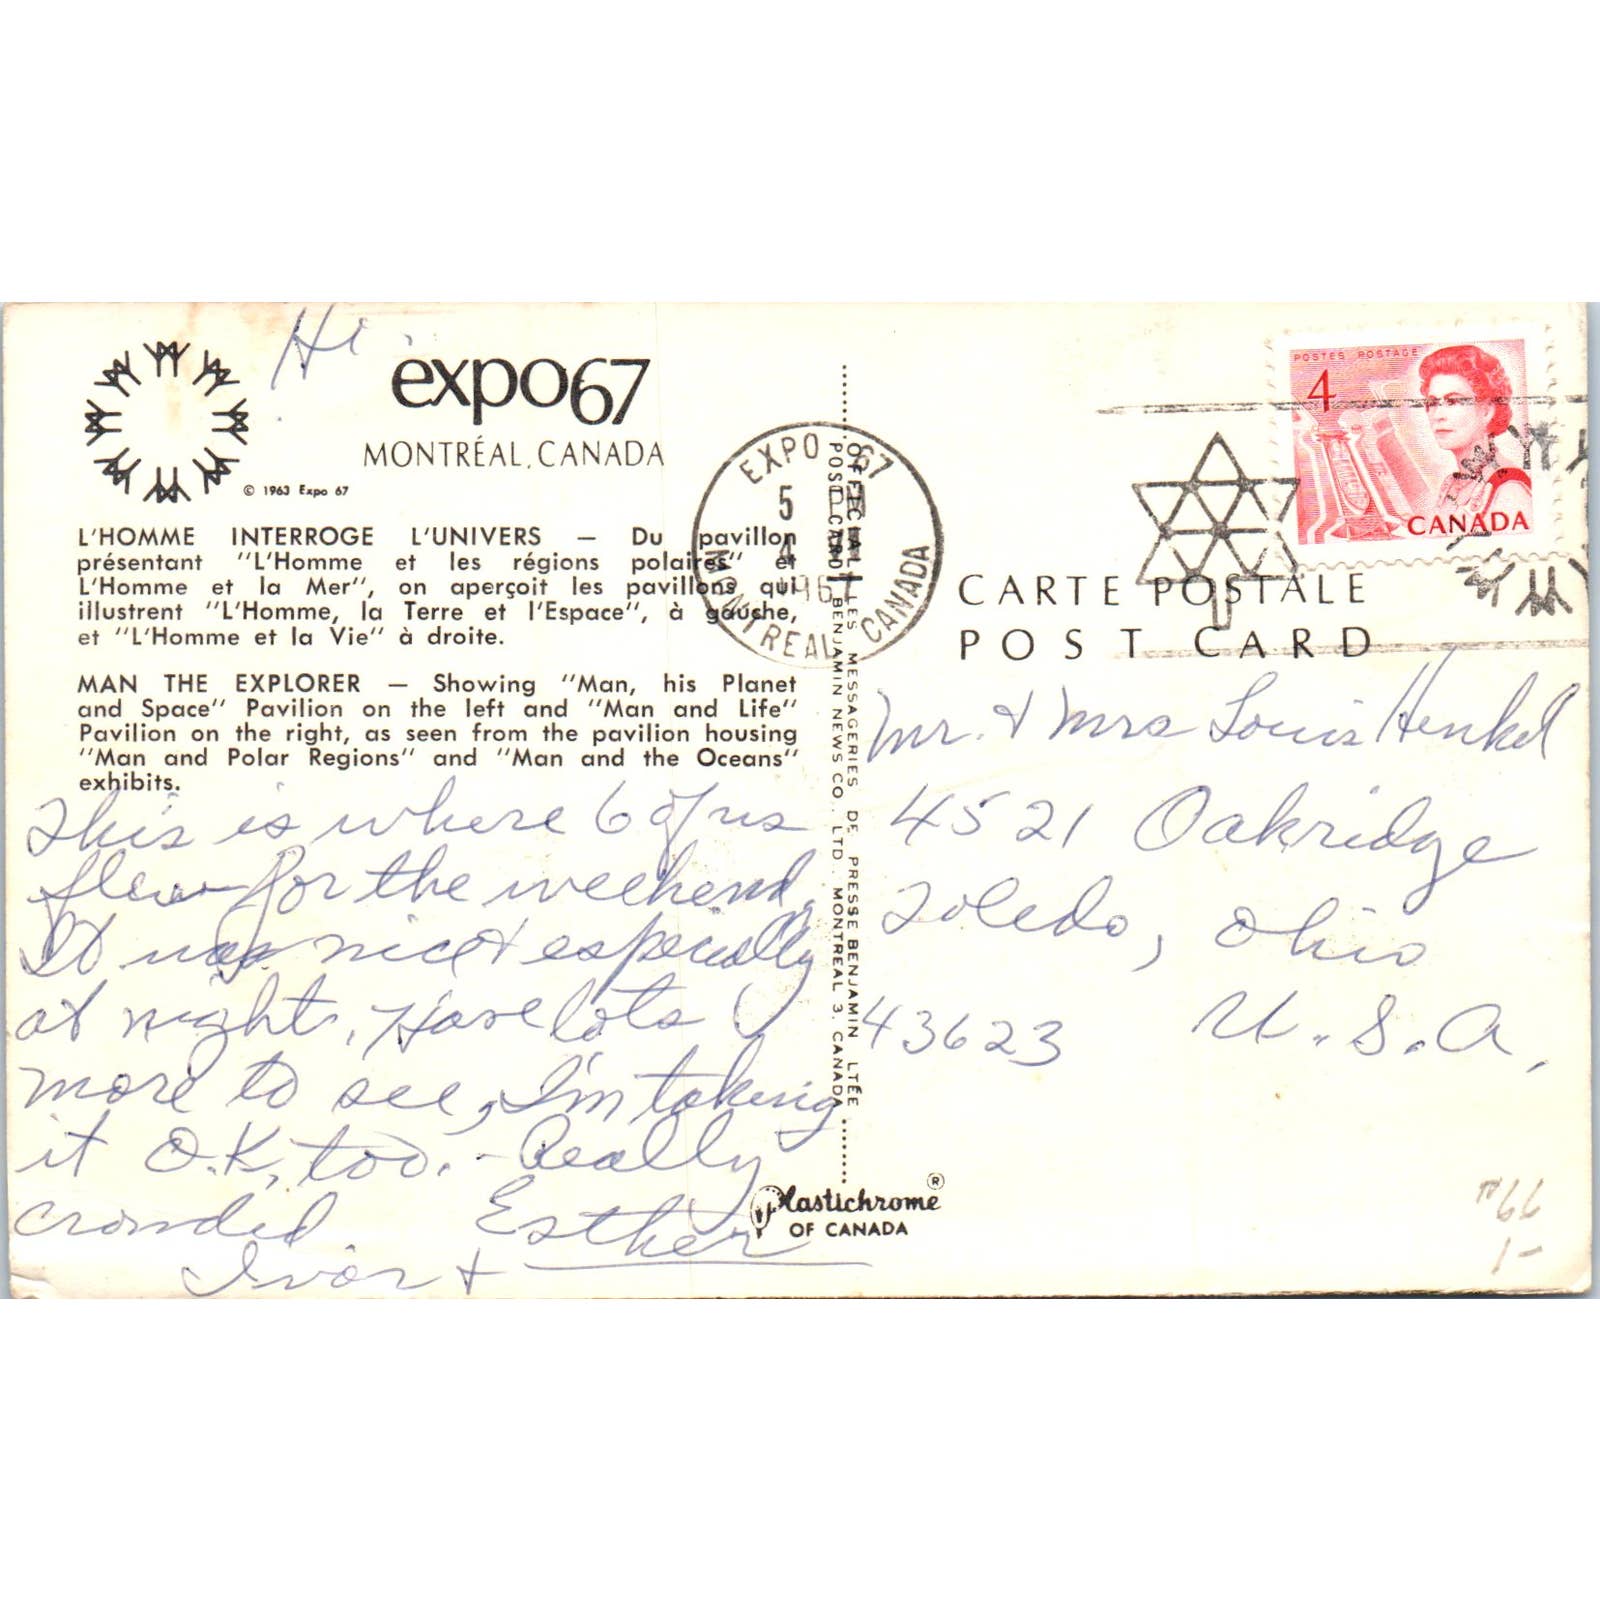 Hi.
expo67
MONTRÉAL, CANADA
© 1963 Expo 67
L'HOMME INTERROGE L'UNIVERS — Du pavillon
présentant "L'Homme et les régions polaires" et
L'Homme et la Mer", on aperçoit les pavillons qui
illustrent "L'Homme, la Terre et l'Espace", à gauche,
et "L'Homme et la Vie" à droite.
MAN THE EXPLORER — Showing "Man, his Planet
and Space" Pavilion on the left and "Man and Life"
Pavilion on the right, as seen from the pavilion housing
"Man and Polar Regions" and "Man and the Oceans"
exhibits.
This is where 6 of us
flew for the weekend.
It was nice & especially
at night. Have lots
more to see, I'm taking
it O.K, too. - Really
crowded. Esther
Ivor &
OFFICIAL LES MESSAGERIES DE PRESSE BENJAMIN LTÉE
POST CARD BENJAMIN NEWS CO. LTD. MONTREAL 3, CANADA
Plastichrome ®
OF CANADA
EXPO 67
5
4
1967
MONTREAL CANADA
POSTES POSTAGE
4
CANADA
CARTE POSTALE
POST CARD
Mr. & Mrs Louis Henkel
4521 Oakridge
Toledo, Ohio
43623 U.S.A.
66
1-